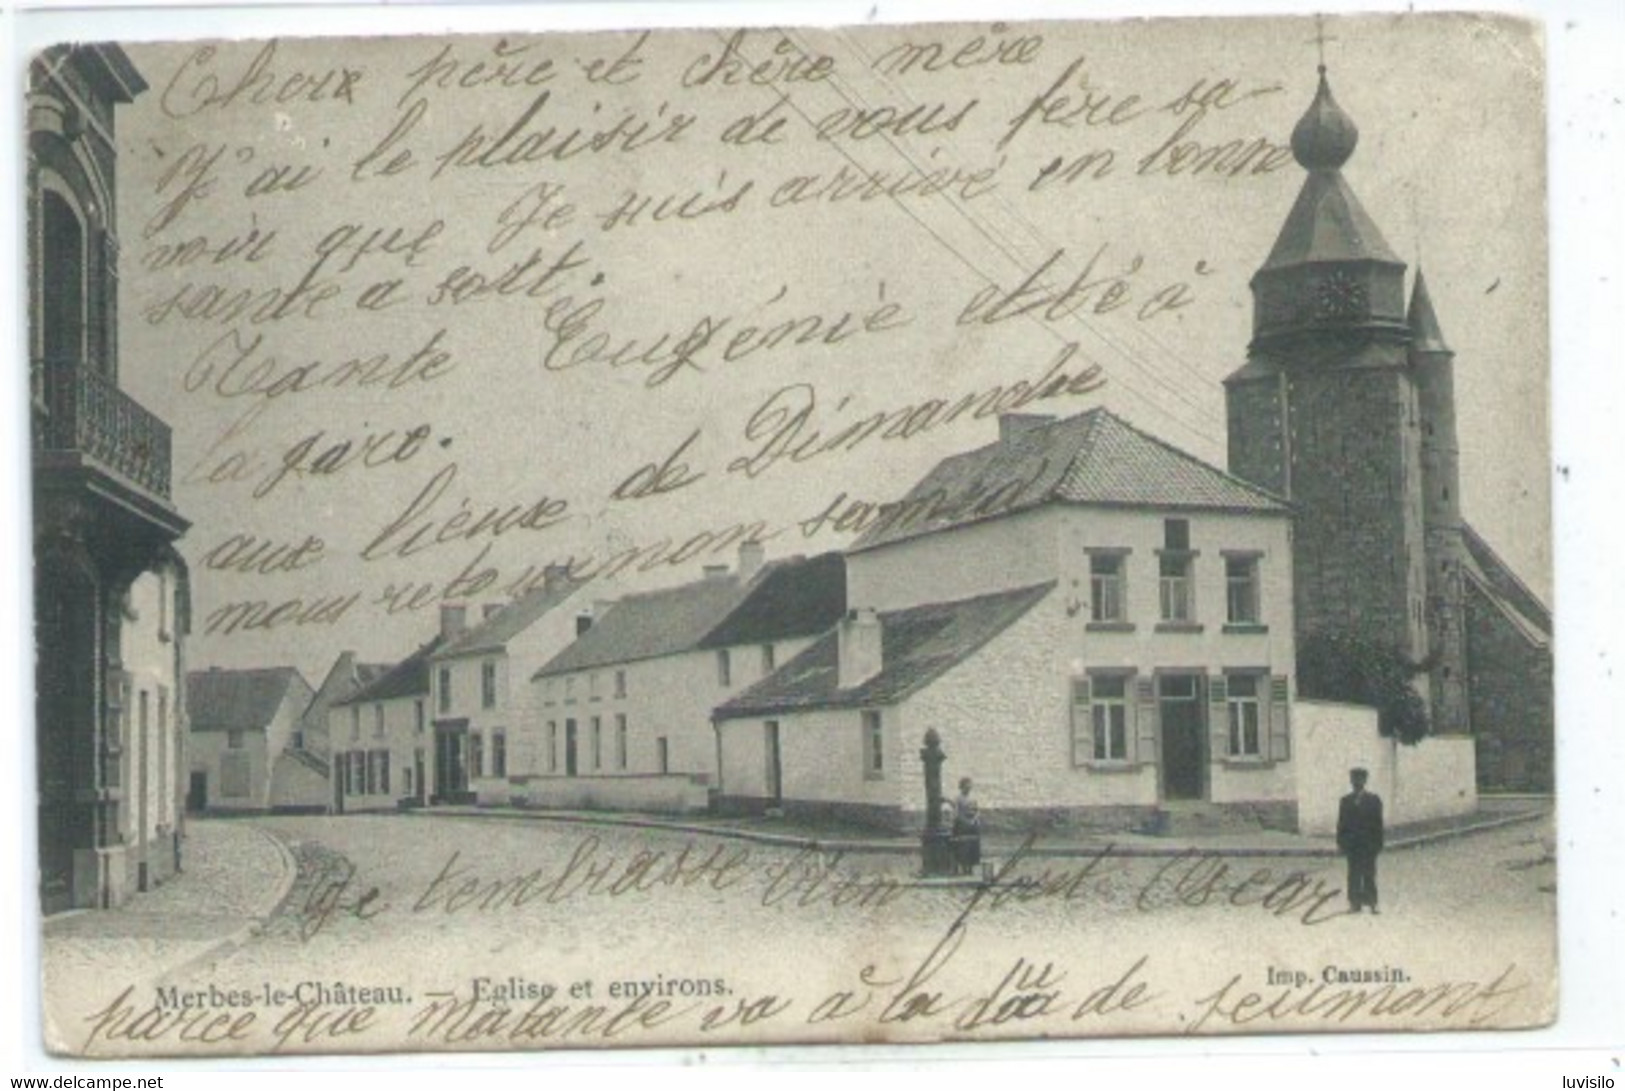 Chere père et chère mère
J'ai le plaisir de vous fère sa-
voir que Je suis arrivé en bonne
sante a sott.
Tante Eugénie etté à
la gare.
aux lieux de Dimanche
nous retournon samedi
Je tembrasse bien fort Oscar
Merbes-le-Château. — Eglise et environs.
Imp. Caussin.
parce que matante va à la de Jeumont
www.delcampe.net
luvisilo